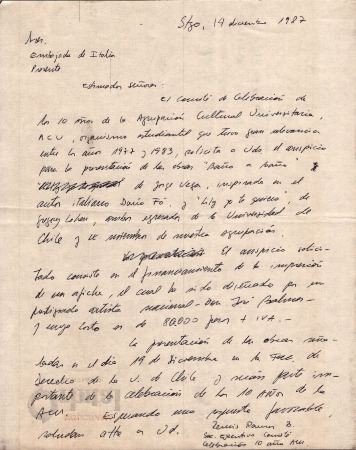 Stgo, 14 diciembre 1987
Sres.
Embajada de Italia
Presente
Estimados señores:
El Comité de Celebración de
los 10 años de la Agrupación Cultural Universitaria,
ACU, organismo estudiantil que tuvo gran relevancia
entre los años 1977 y 1983, solicita a Uds. el auspicio
para la presentación de las obras "Baño a baño"
de Jorge Vega, inspirada en el
autor italiano Darío Fó, y "Lily, yo te quiero", de
Gregory Cohen, ambos egresados de la Universidad de
Chile y ex miembros de nuestra agrupación.
El auspicio solici-
tado consiste en el financiamiento de la impresión
de un afiche, el cual ha sido diseñado por un
participado artista nacional - Don José Balmes -
y cuyo costo es de 80.000 pesos + IVA.-
La presentación de las obras seña-
ladas es el día 19 de Diciembre en la Fac. de
Derecho de la U. de Chile y serán parte im-
portante de la celebración de los 10 AÑOS de la
ACU. Esperando una respuesta favorable,
saludan atte a Ud.
Ramos B.
Sec. Ejecutivo Comité
Celebración 10 año ACU